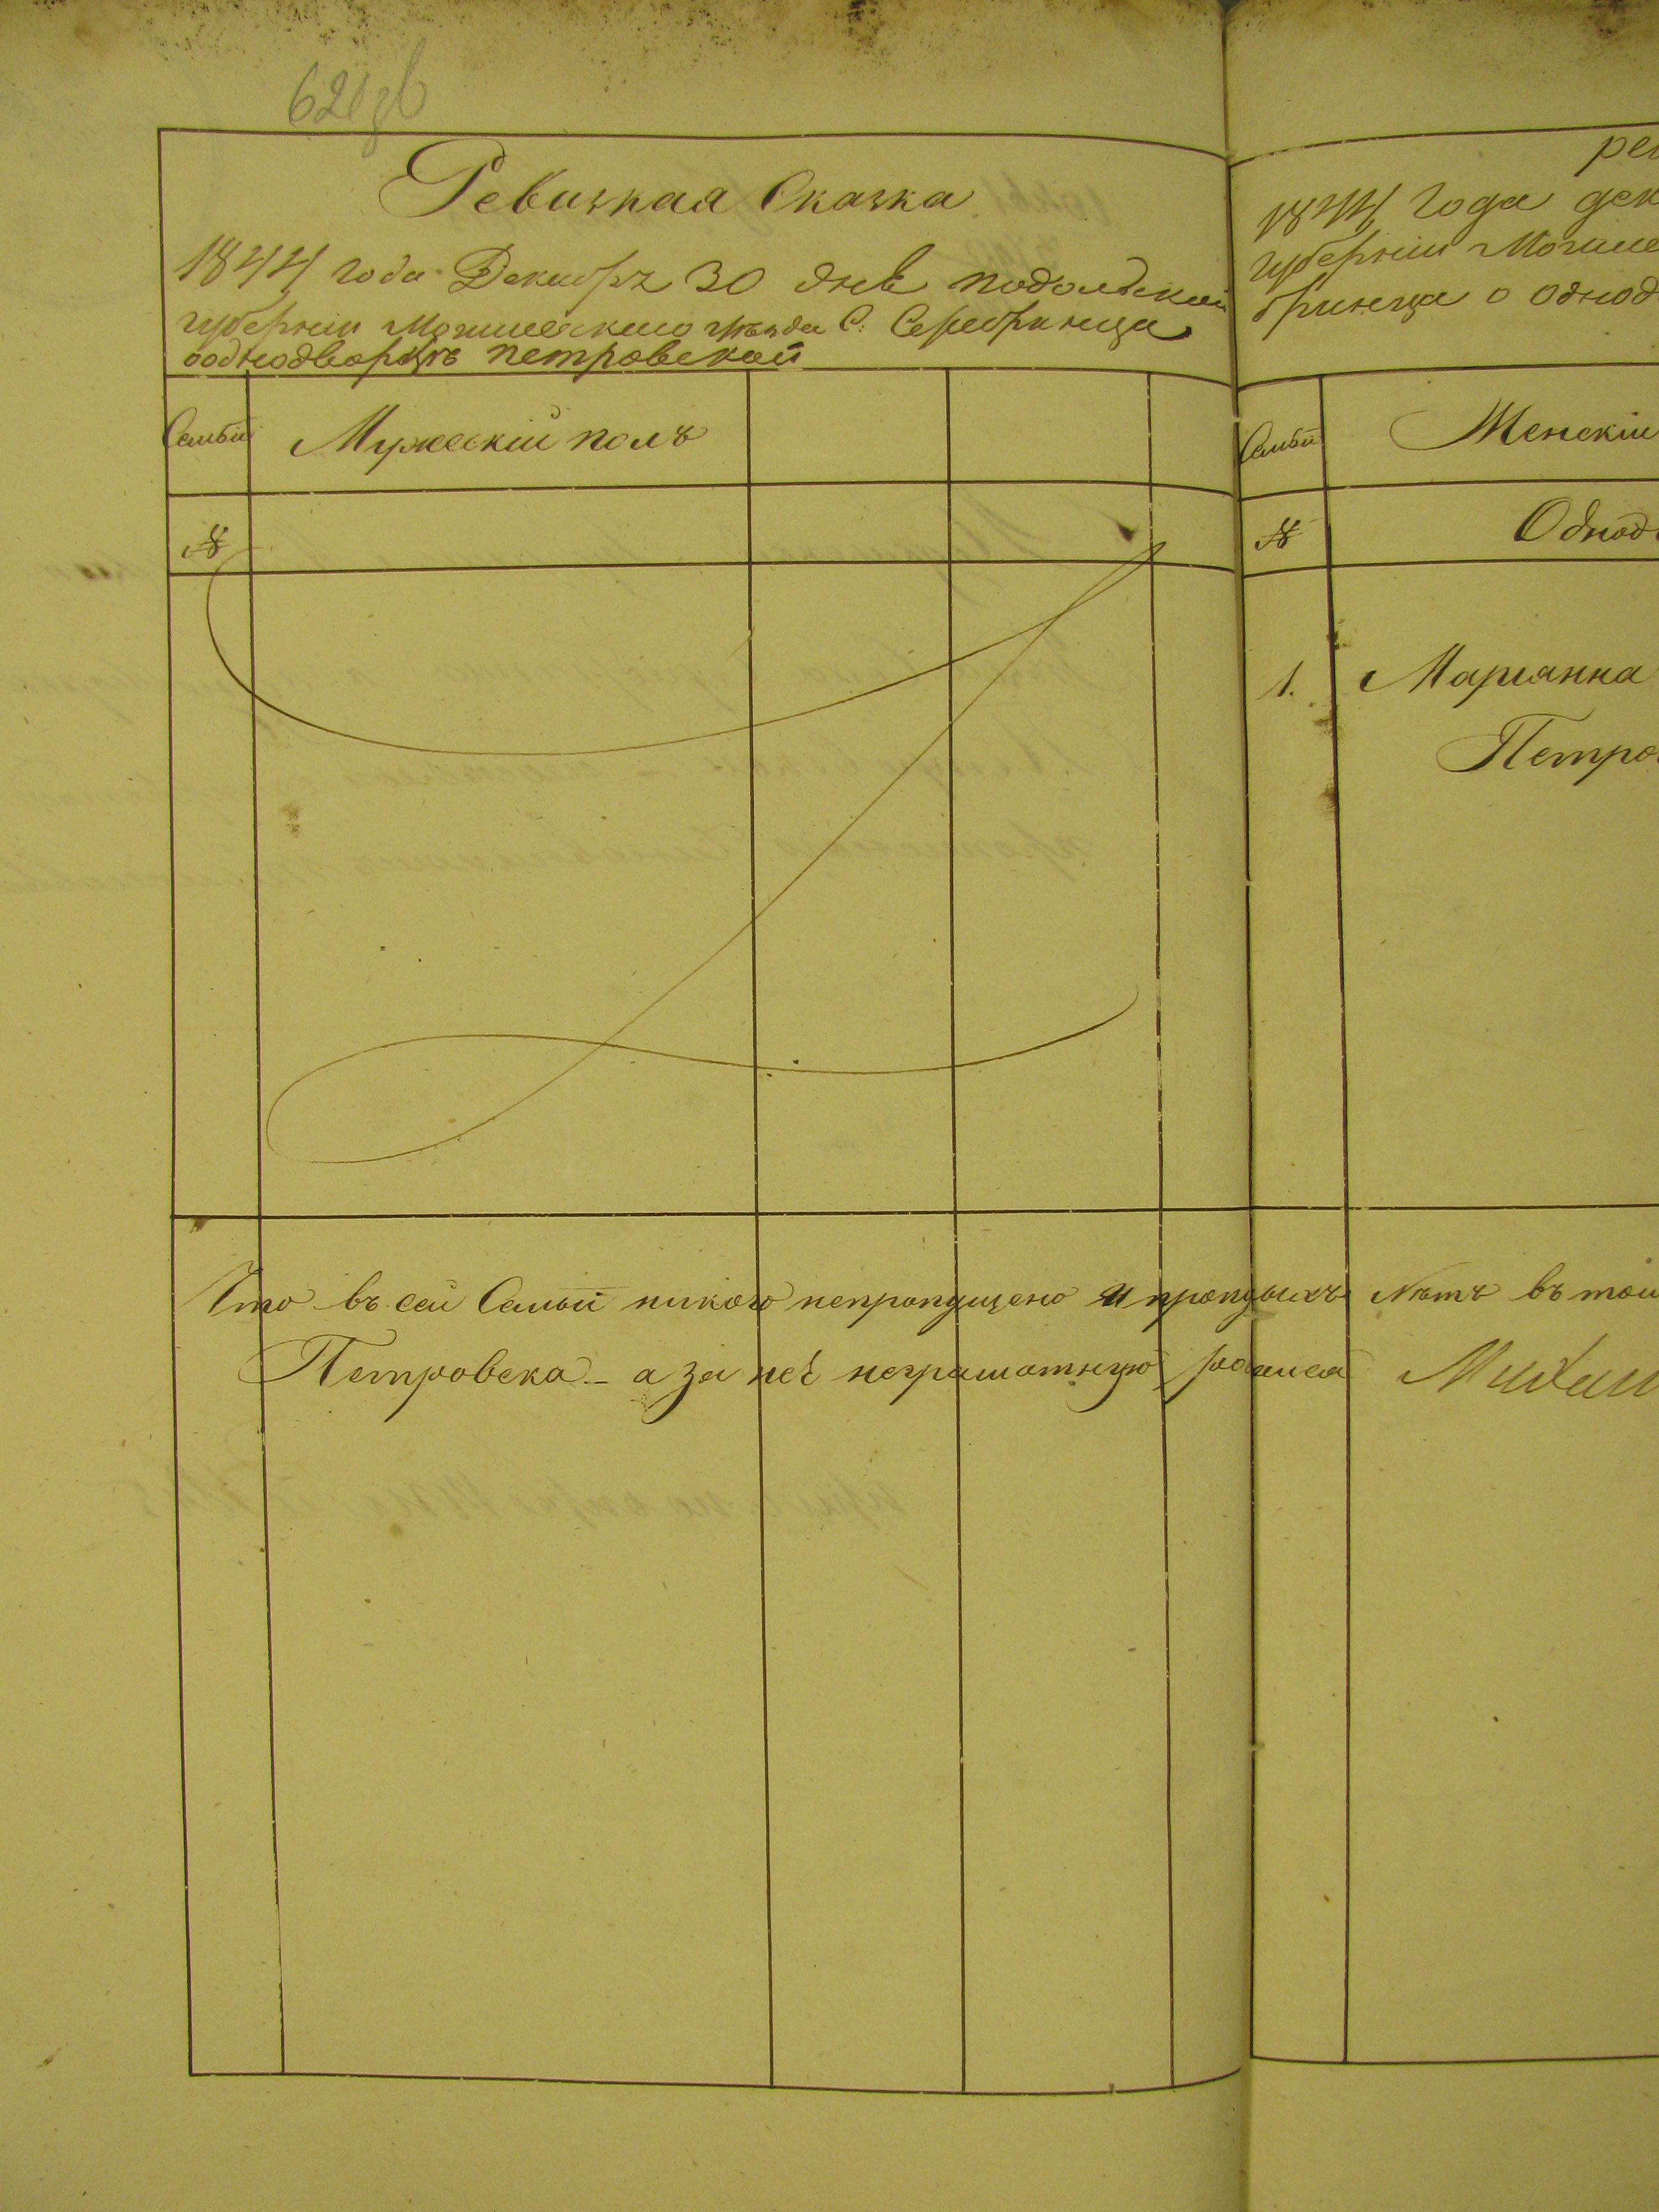 621 зв
Ревизкая Сказка
1844 года Декабря 30 дня подольской
губернiи Могилевскаго уѣзда С: Серебринца
о однодворкѣ петровской
Семьи Мужескiй полъ
№
Что въ сей Семьи никого непропущено и прописныхъ нѣтъ въ том
Петровска – а за неё неграмотную росписался
ре
1844 года дек
губернiи Могиле
бринца о однод
Семьи Женскiй
№ Однод
1. Марiанна
Петро